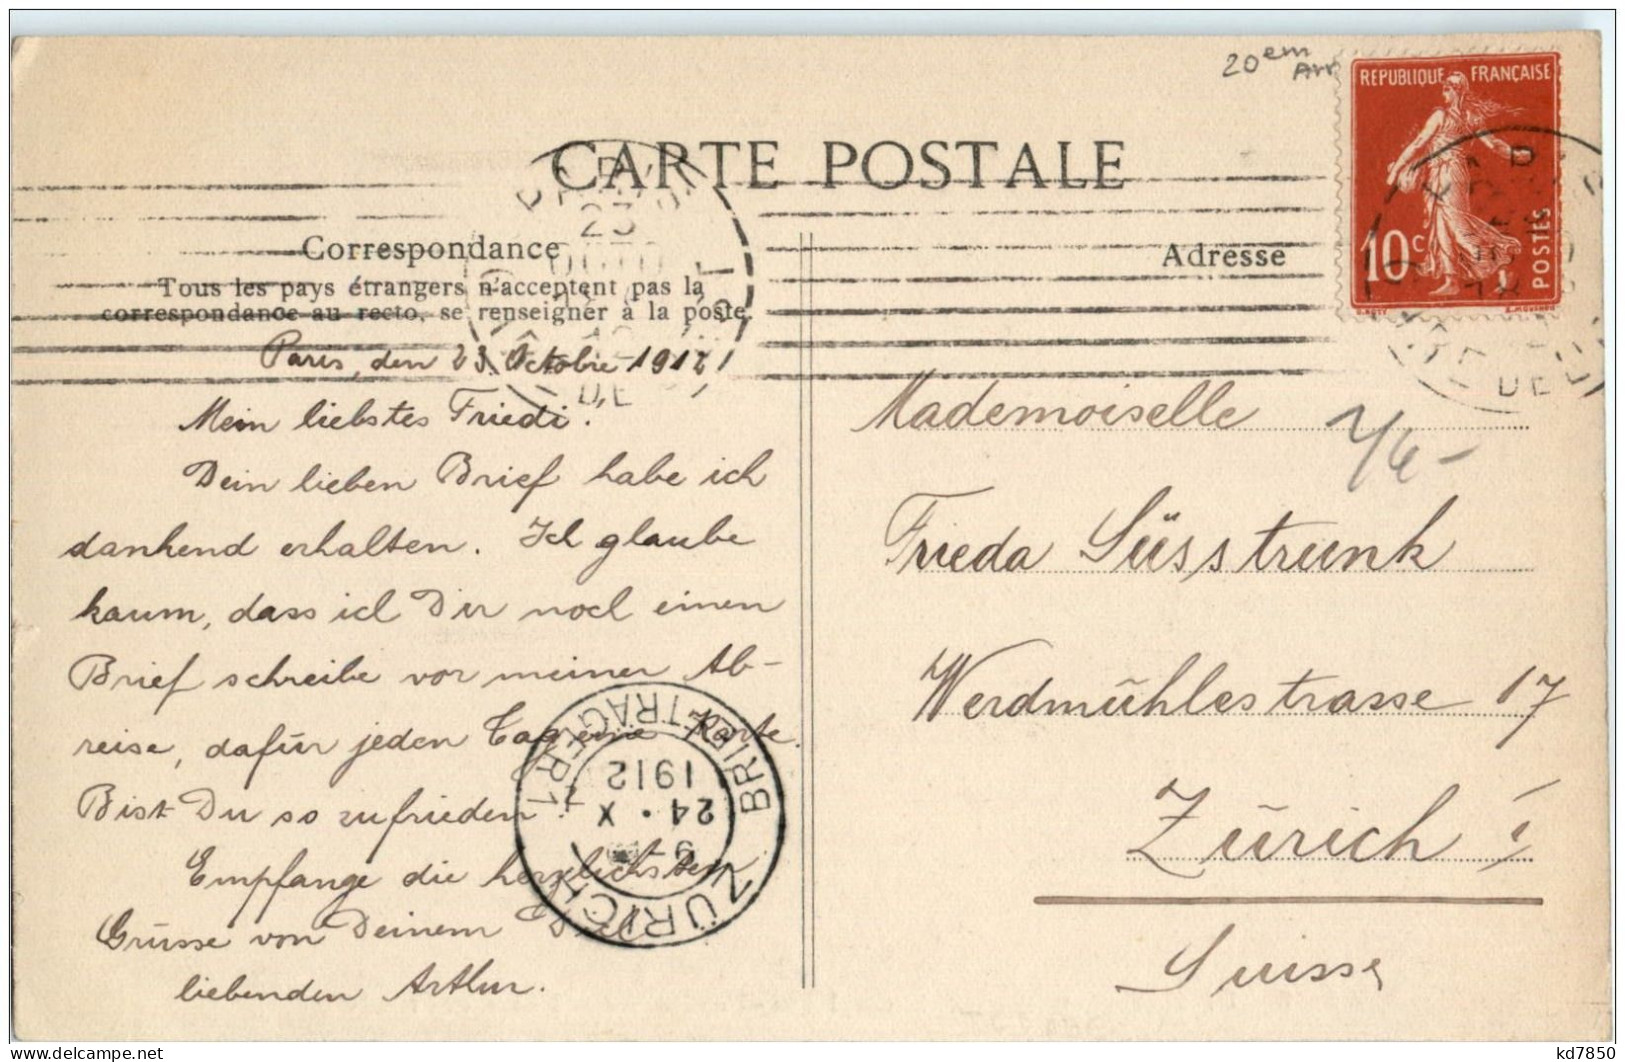 20em
Arr
REPUBLIQUE FRANÇAISE
10c
POSTES
CARTE POSTALE
Correspondance
Adresse
Tous les pays étrangers n'acceptent pas la
correspondance au recto, se renseigner à la poste.
Paris, den 23. Octobre 1912
Mein liebstes Friedi.
Dein lieben Brief habe ich
dankend erhalten. Ich glaube
kaum, dass ich Dir noch einen
Brief schreibe vor meiner Ab-
reise, dafür jeden Tag eine Karte.
Bist Du so zufrieden?
Empfange die herzlichsten
Grüsse von Deinem Dich
liebenden Arthur.
Mademoiselle
Frieda Süsstrunk
Werdmühlestrasse 17
Zürich I
Suisse
23
DE
ZÜRICH 1
BRIEFTRÄGER
24.X
1912
9
kd7850